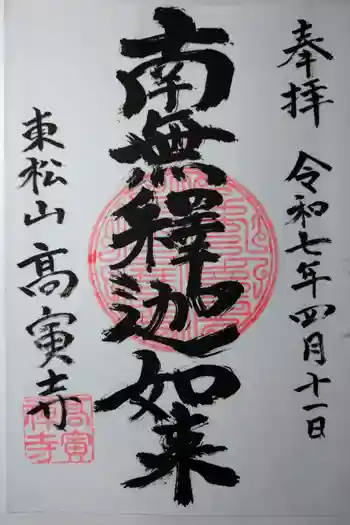 奉拝 令和七年四月十一日
南無釋迦如来
東松山 高寅寺
高寅
禅寺